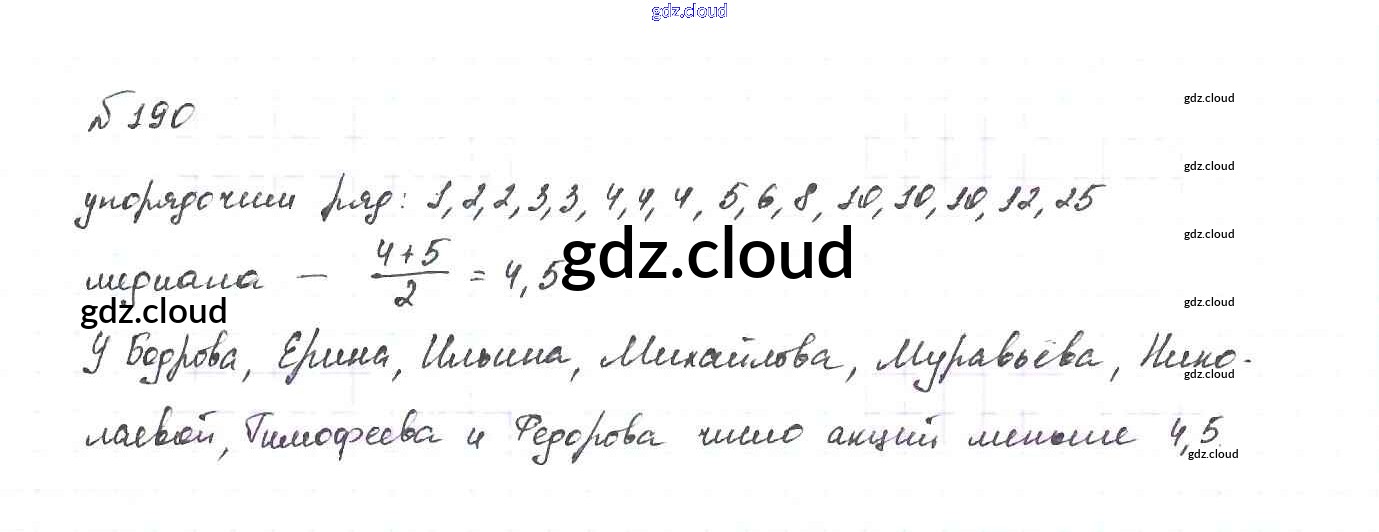 gdz.cloud
№190
gdz.cloud
gdz.cloud
упорядочим ряд: 1, 2, 2, 3, 3, 4, 4, 4, 5, 6, 8, 10, 10, 10, 12, 25
gdz.cloud
медиана — (4+5)/2 = 4,5
gdz.cloud
gdz.cloud
gdz.cloud
У Бодрова, Ерина, Ильина, Михайлова, Муравьёва, Нико-
gdz.cloud
лаевой, Тимофеева и Федорова число акций меньше 4,5
gdz.cloud